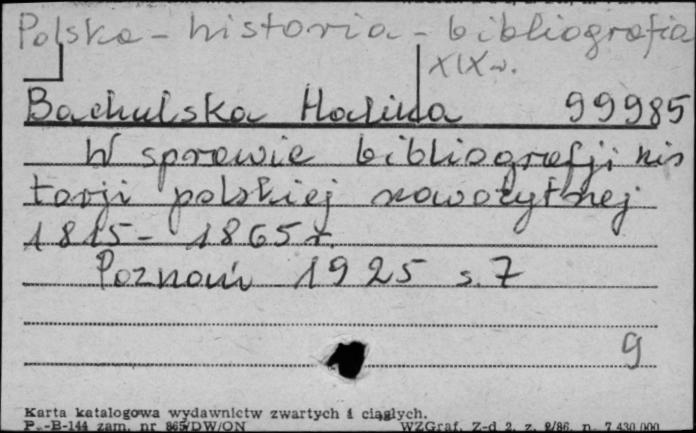 Polska - historia - bibliografia
XIX w.
Bachulska Halina 99985
W sprawie bibliografji his
torji polskiej nowożytnej
1815 - 1865 r.
Poznań 1925 s. 7
9
Karta katalogowa wydawnictw zwartych i ciągłych.
P.-B-144 zam. nr 865/DW/ON WZGraf. Z-d 2, z. 2/86, n. 7.430.000